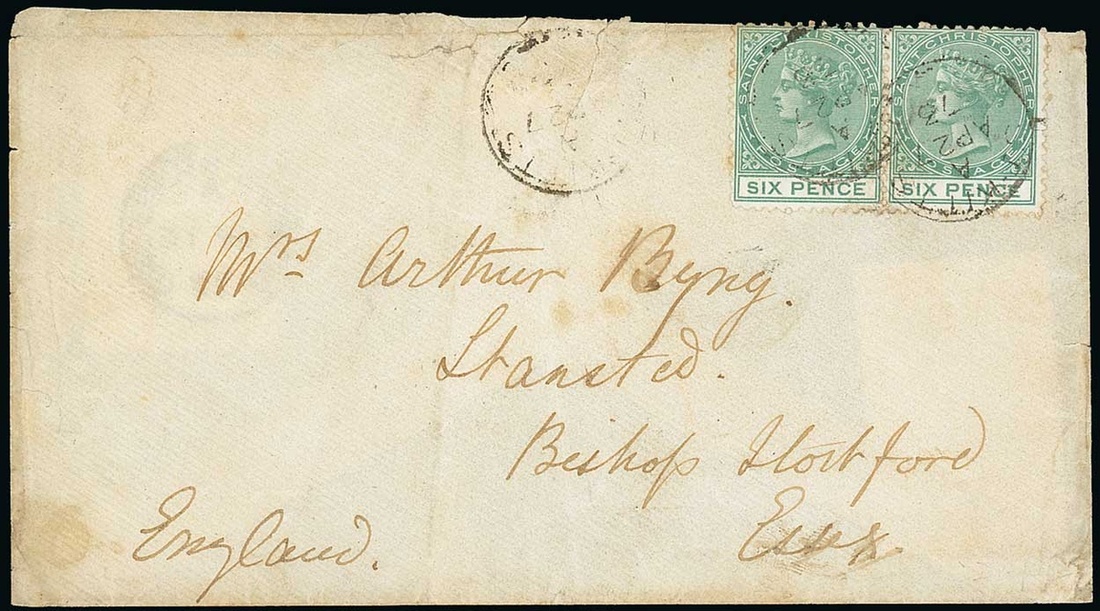 SAINT CHRISTOPHER
POSTAGE
SIX PENCE
SAINT CHRISTOPHER
POSTAGE
SIX PENCE
A
AP 23
Mrs Arthur Byng.
Stansted.
Bishop Stortford
Essex
England.